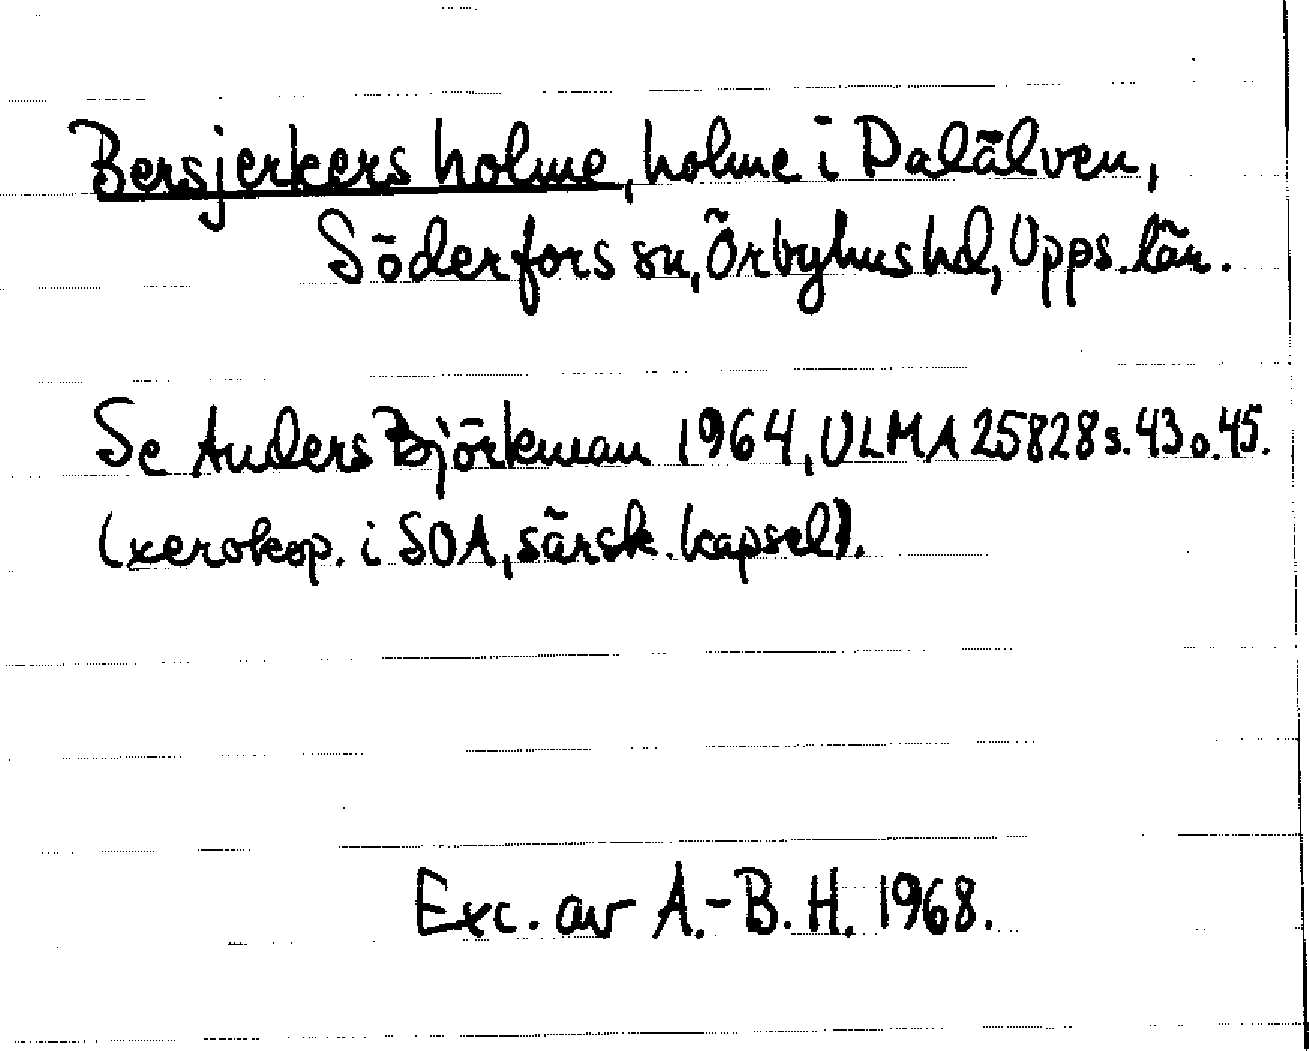 Bersjerkers holme, holme i Dalälven,
Söderfors sn, Örbyhus hd, Upps. län.
Se Anders Björkman 1964, ULMA 25828 s. 43 o. 45.
(xerokop. i SOA, särsk. kapsel).
Exc. av A.-B. H. 1968.